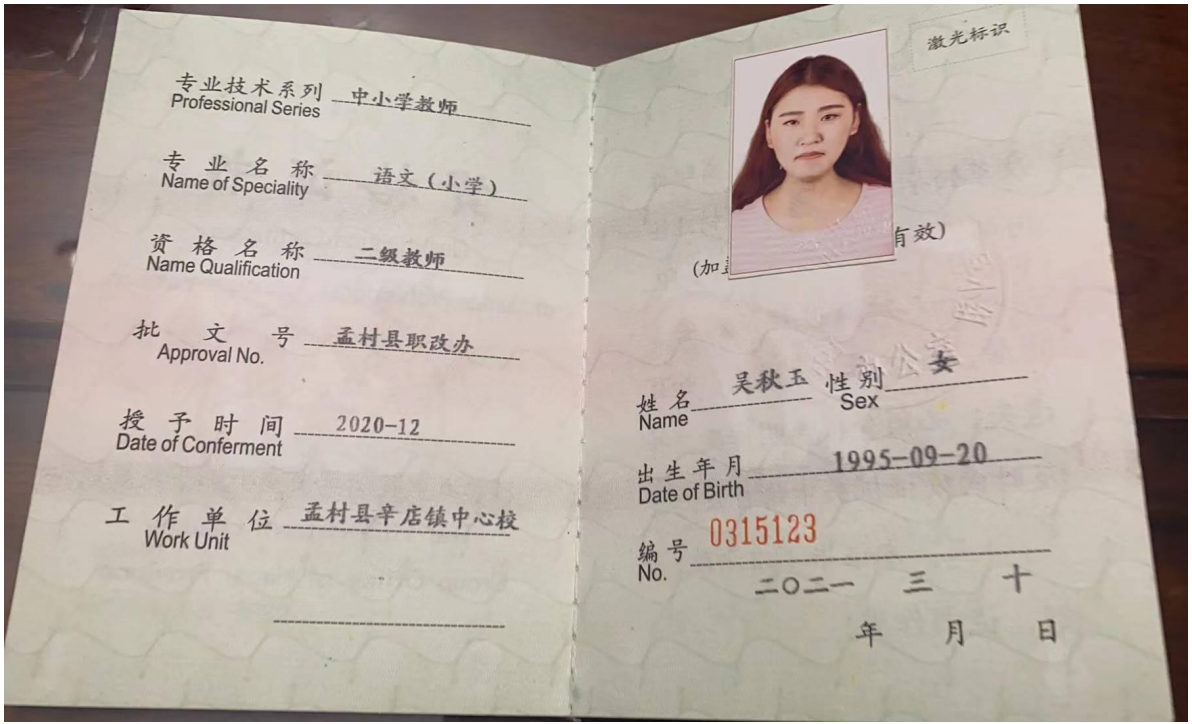 专业技术系列 中小学教师
Professional Series
专业名称 语文（小学）
Name of Speciality
资格名称 二级教师
Name Qualification
批文号 孟村县职改办
Approval No.
授予时间 2020-12
Date of Conferment
工作单位 孟村县辛店镇中心校
Work Unit
激光标识
(加 有效)
办公章
姓名 吴秋玉 性别 女
Name Sex
出生年月 1995-09-20
Date of Birth
编号 0315123
No.
二〇二一 三 十
年 月 日